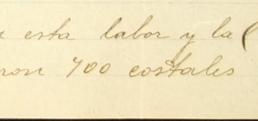 esta labor y la
ron 700 costales